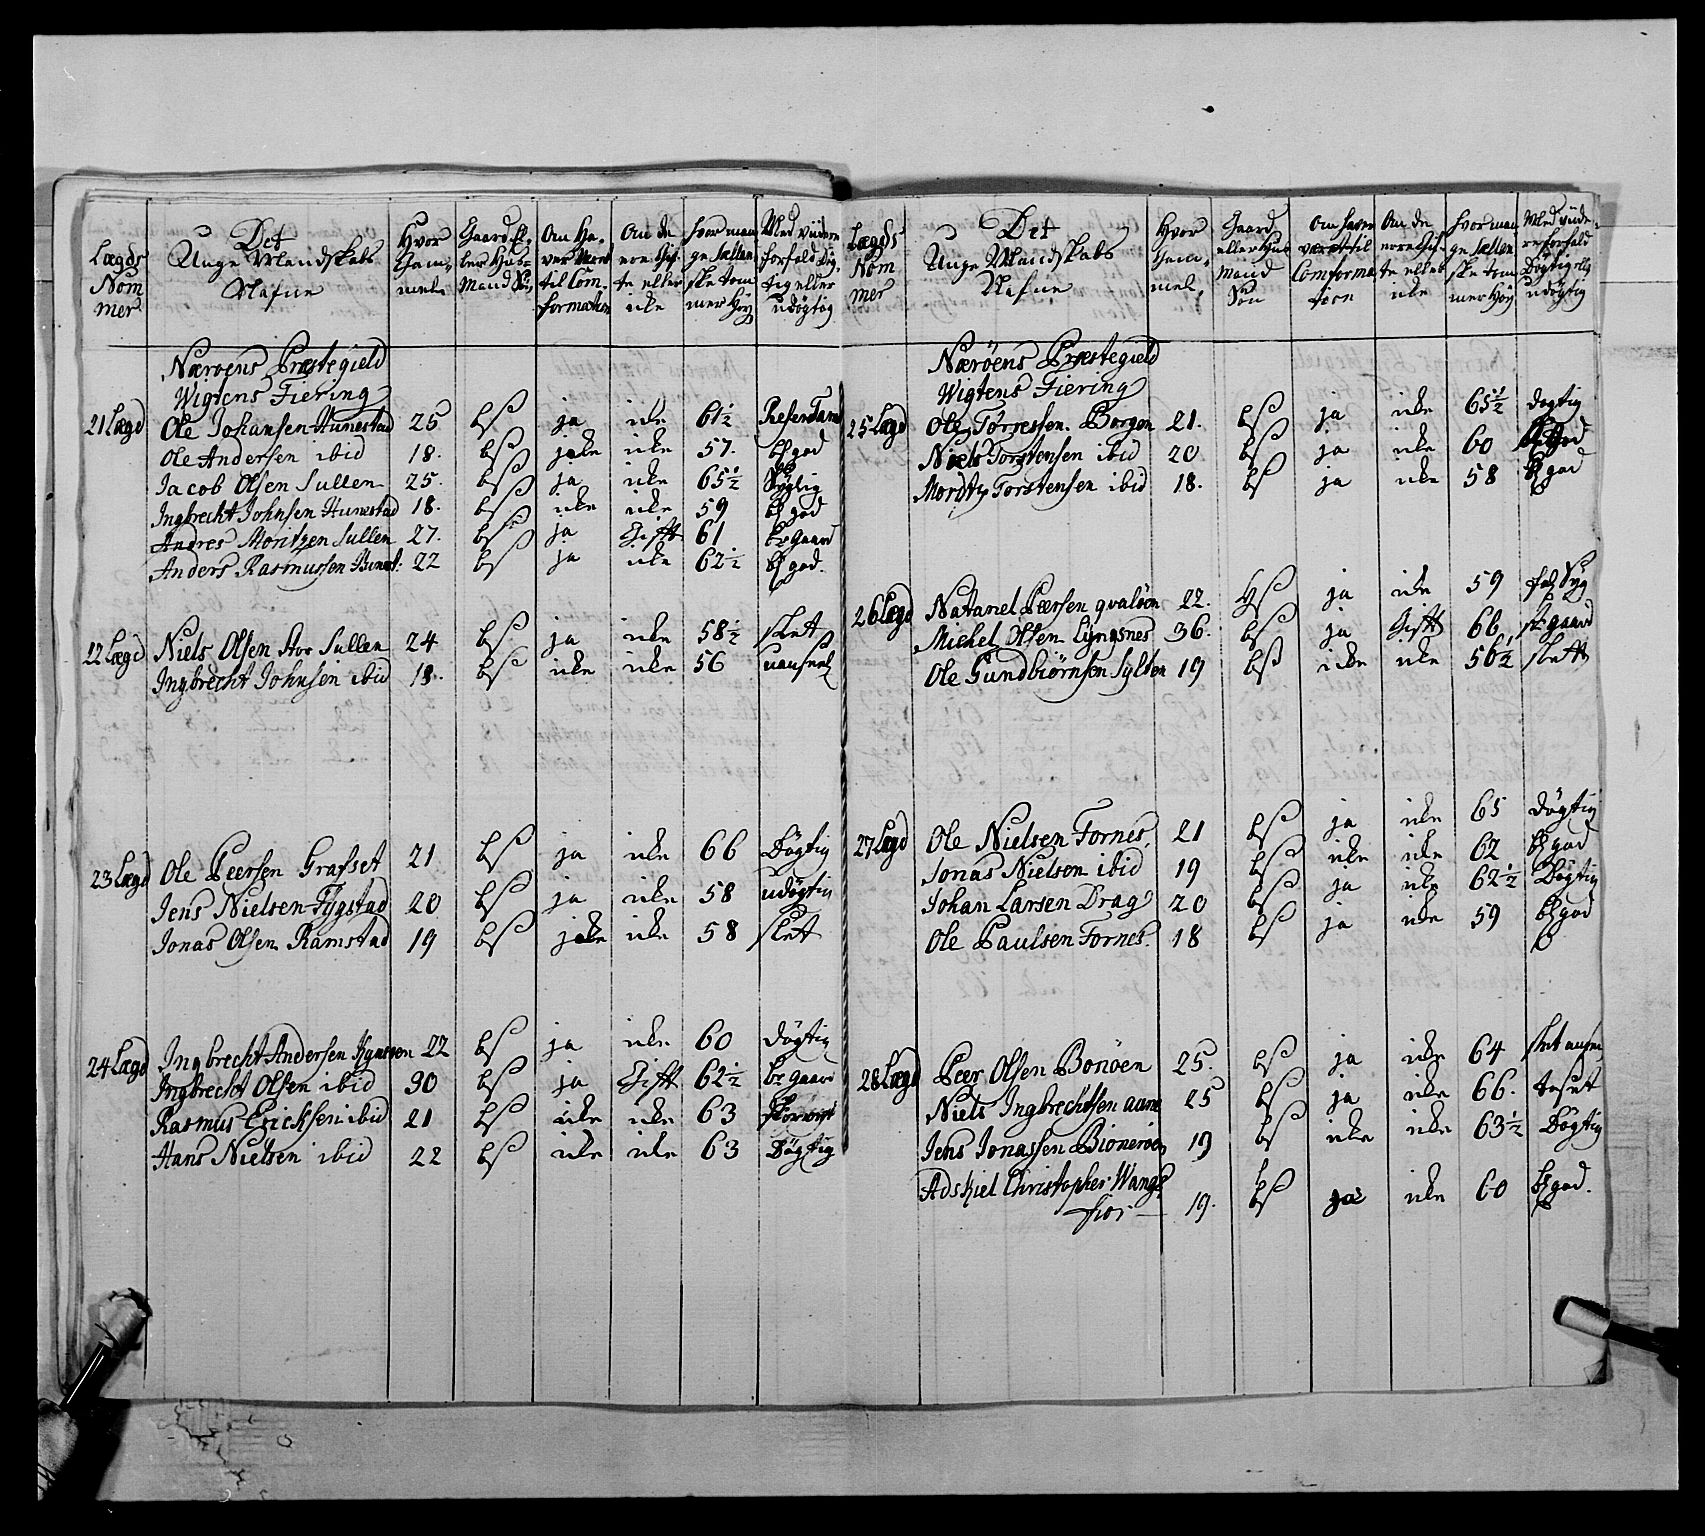 Lægds Nom mer | Det Unge Mandskabs Nafne | Hvor Gam- mel | Gaard El- ler Huus- mand Søn | Om Ha- ver været til Con- formation | Om de ere Gif- te eller icke | Hvor man- ge Sællan- ske tom- mer Høy | Med viidere forfald Dyg- tig eller udøgtig
Næroens Præstegield
Wigtens Fiering
21 Lægd Ole Johansen Hunestad 25 bS ja icke 61½
Ole Andersen ibid 18. bS icke icke 57. bz god
Jacob Olsen Sullen 25. bS ja icke 65½ Syglig
Ingbrecht Johnsen Hunestad 18. bS icke icke 59 bz god
Andres Moritzen Sullen 27. bS ja Gift 61 br gaard
Anders Rasmussen 22 bS ja icke 62½ bz god.
22 Lægd Niels Olsen Stor Sullen 24 bS ja icke 58½ slet
Ingbrecht Johnsen ibid 18. bS icke icke 56
23 Lægd Ole Peersen Grafset 21 bS ja icke 66 Døgtig
Jens Nielsen Flygstad 20 bS ja icke 58 udøgtig
Jonas Olsen Ramstad 19 bS icke icke 58 slet
24 Lægd Ingbrecht Andersen 22 bS ja icke 60 døgtig
Ingbrecht Olsen ibid 30 bS ja Gift 62½ br gaard
Rasmus Ericksen ibid 21 bS icke icke 63
Hans Nielsen ibid 22 bS icke icke 63 Døgtig
Lægds Nom mer | Det Unge Mandskabs Nafne | Hvor Gam- mel. | Gaard eller Huus Mand Søn | Om haver været til Comforma tion | Om de erre Gif- te eller icke | Hvor man ge Sællan ske tom mer Høy | Med viide- re forfald Døgtig elr udøgtig
Nærøens Præstegield
Wigtens Fiering
25 Lægd Ole Torresten. Borgen 21. bS ja icke 65½ døgtig
Niels Torstensen ibid 20 bS ja icke 60
Mordtz Torstensen ibid 18. bS ja icke 58 bz god
26 Lægd Natanel Peersen qvaløen 22. bS ja icke 59
Michel Olsen Lyngsnes 36. bS ja Gift 66 gaard
Ole Gundbiørnsen Sylten 19 bS icke icke 56½ slett
27 Lægd Ole Nielsen Fornes, 21 bS ja icke 65 døgtig
Jonas Nielsen ibid 19 bS icke icke 62 bz god
Johan Larsen Drag 20 bS ja icke 62½ Døgtig
Ole Paulsen Fornes. 18 bS ja icke 59 bz god
28 Lægd Peer Olsen Borøen 25. bS ja icke 64
Niels Ingbrechtsen 25 bS ja icke 66.
Jens Jonassen Bionerøen 19 bS icke icke 63½ Døgtig
Adskiel Christopher Wangs
fior 19. bS ja icke 60 bz god.